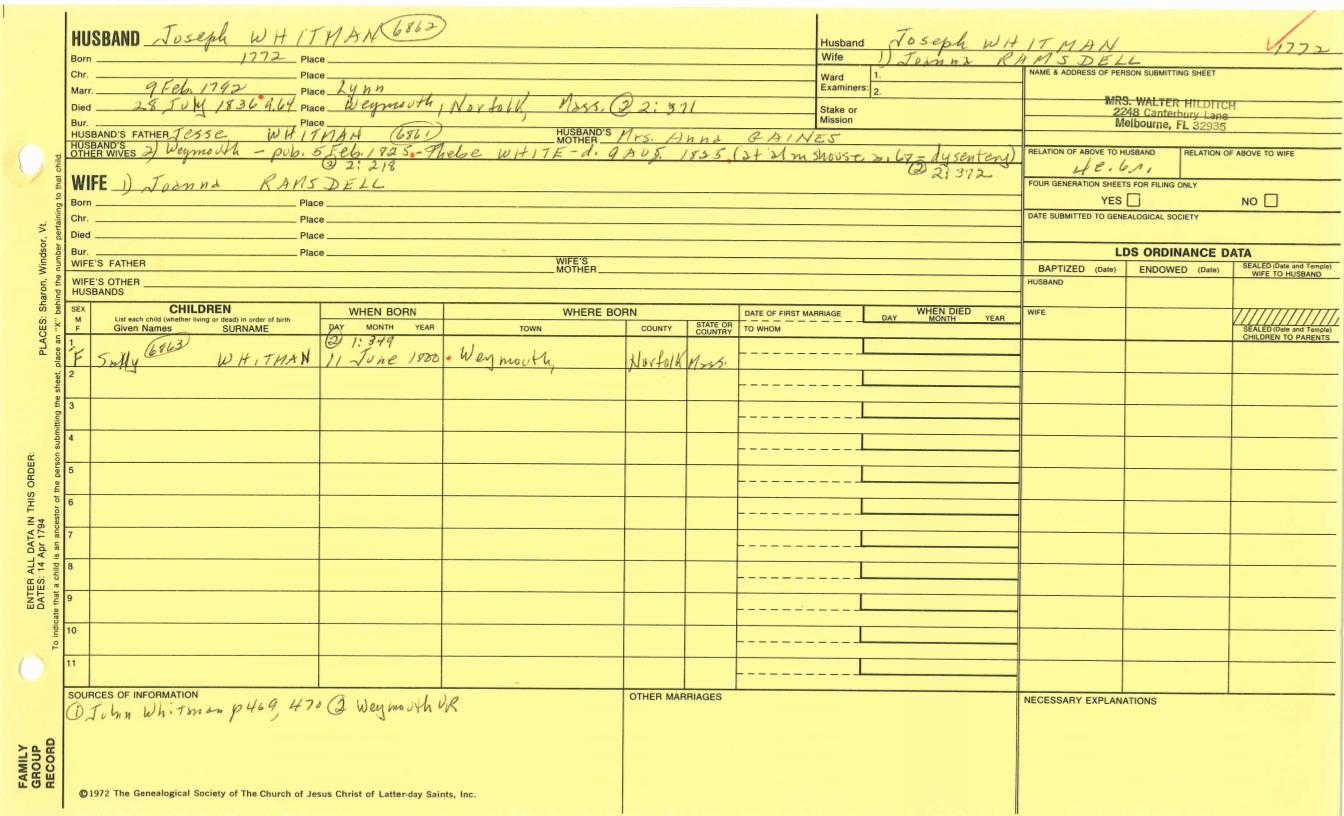 HUSBAND Joseph WHITMAN 6862
Born 1772 Place
Chr. Place
Marr. 9 Feb. 1792 Place Lynn
Died 28 July 1836 a.64 Place Weymouth, Norfolk, Mass. ② 2:371
Bur. Place
HUSBAND'S FATHER Jesse WHITMAN (6861) HUSBAND'S MOTHER Mrs. Anna GAINES
HUSBAND'S OTHER WIVES 2) Weymouth - pub. 5 Feb. 1825 - Phebe WHITE - d. 9 Aug. 1825. (at almshouse, a. 67 - dysentery)
② 2:218 ② 2:372
WIFE 1) Joanna RAMSDELL
Born Place
Chr. Place
Died Place
Bur. Place
WIFE'S FATHER WIFE'S MOTHER
WIFE'S OTHER HUSBANDS
Husband Joseph WHITMAN 1772
Wife 1) Joanna RAMSDELL
Ward Examiners: 1. 2.
Stake or Mission
NAME & ADDRESS OF PERSON SUBMITTING SHEET
MRS. WALTER HILDITCH
2248 Canterbury Lane
Melbourne, FL 32935
RELATION OF ABOVE TO HUSBAND RELATION OF ABOVE TO WIFE
FOUR GENERATION SHEETS FOR FILING ONLY
YES NO
DATE SUBMITTED TO GENEALOGICAL SOCIETY
LDS ORDINANCE DATA
BAPTIZED (Date) ENDOWED (Date) SEALED (Date and Temple) WIFE TO HUSBAND
HUSBAND
WIFE
SEALED (Date and Temple) CHILDREN TO PARENTS
SEX M F
CHILDREN
List each child (whether living or dead) in order of birth
Given Names SURNAME
WHEN BORN
DAY MONTH YEAR
WHERE BORN
TOWN COUNTY STATE OR COUNTRY
DATE OF FIRST MARRIAGE
TO WHOM
WHEN DIED
DAY MONTH YEAR
② 1:349
1 F Sally (6863) WHITMAN 11 June 1800 Weymouth, Norfolk Mass.
2
3
4
5
6
7
8
9
10
11
SOURCES OF INFORMATION
① John Whitman p 469, 470 ② Weymouth VR
OTHER MARRIAGES
NECESSARY EXPLANATIONS
©1972 The Genealogical Society of The Church of Jesus Christ of Latter-day Saints, Inc.
FAMILY GROUP RECORD
ENTER ALL DATA IN THIS ORDER:
DATES: 14 Apr 1794
PLACES: Sharon, Windsor, Vt.
To indicate that a child is an ancestor of the person submitting the sheet, place an "X" behind the number pertaining to that child.